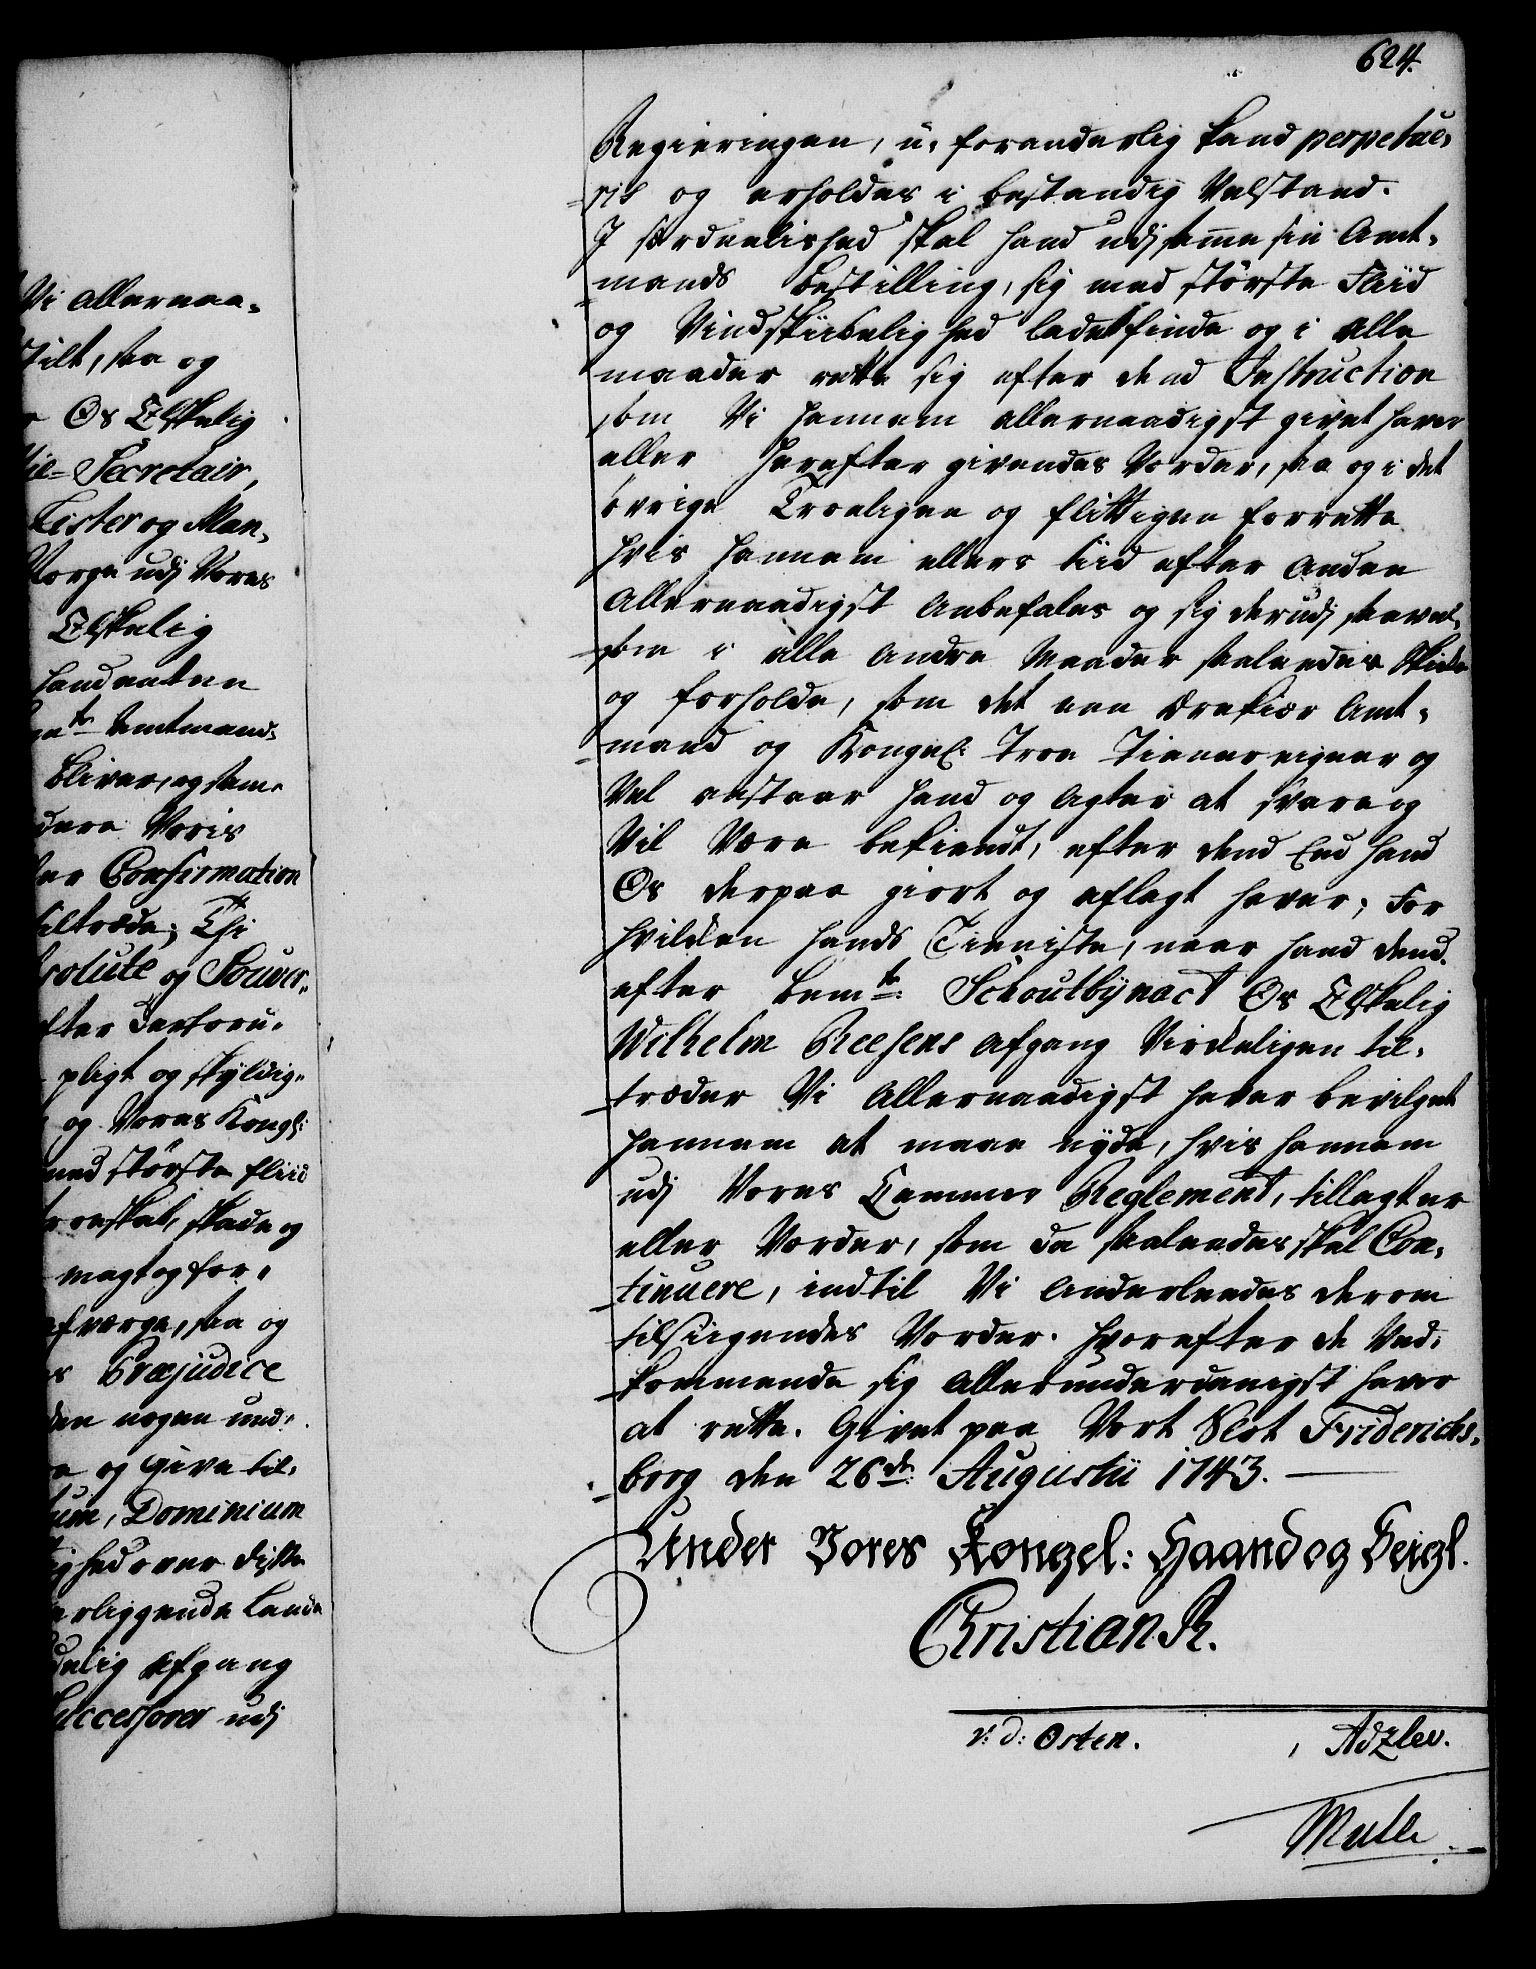 624.
Regieringen, u-foranderlig kand perpetue-
ris og erholdes i bestandig Velstand.
I særdeelished skal hand udj samme sin Amt-
mands Bestilling, sig med største Fliid
og Vindskiibelighed ladet finde og i alle
maader rette sig efter dend Instruction
som Vi hannem allernaadigst givet haver
eller herefter givendes Vorder, saa og i det
øvrige Troeligen og flittigen forrette
hvis hannem ellers tiid efter anden
Allernaadigst Anbefales og sig derudj saavel-
som i alle Andre Maader saaledes Skicke
og forholde, som det een Ærekiær Amt-
mand og Kongel: Troe Tienner eigner og
Vel anstaar hand og Agter at svare og
Vil Være bekiendt, efter dend Eed hand
Os derpaa giort og aflagt haver; For
hvilcken hands Tienniste, naar hand dend
efter bemte: Schoutbÿnact Os Elskelig
Wilhelm Reesens Afgang Virckeligen til-
træder Vi Allernaadigst haver bevilget
hannem at maae nÿde, hvis hannem
udj Vores Cammer Reglement, tillagt er
eller Vorder, som da saaledes skal Con-
tinuere, indtil Vi Anderleedes derom
tilsiigendes Vorder. hvorefter de Ved-
kommende sig Allerunderdanigst haver
at rette. Givet paa Vort Slot Friderichs-
borg den 26de: Augustii 1743.
Under Vores Kongel: Haand og Seigl.
Christian R.
v: d: Osten. Adzlev.
Mulle
Vi Allernaa-
stilt, saa og
Os Elskelig
Secretair,
Lister og Man-
Norge udj Vores
Elskelig
hand anden
Amtmand-
bliver, og sam-
Voris
Confirmation
tiltræde; Thi
og Souver-
efter Derforu-
pligt og skÿldig-
og Vores Kongl:
med største fliid
skade og
magt og for-
afværge, saa og
Præjudice
nogen und-
og Give til-
Dominium
over disse
erliggende Lande
Afgang
Successorer udj